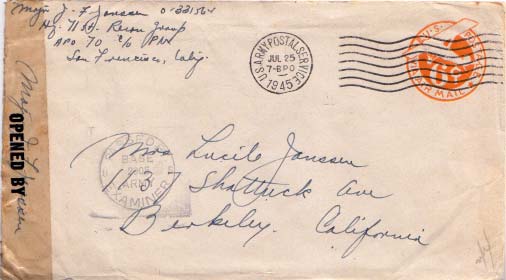 Major J. F. Janssen O-331564
Hq. 71st Recon Group
APO 70 c/o P.M.
San Francisco, Calif.
U.S. ARMY POSTAL SERVICE
JUL 25
7-BPO
1945
U.S. POSTAGE
VIA AIR MAIL
OPENED BY
BASE
ARMY
EXAMINER
Mrs Lucile Janssen
1137 Shattuck Ave
Berkeley. California